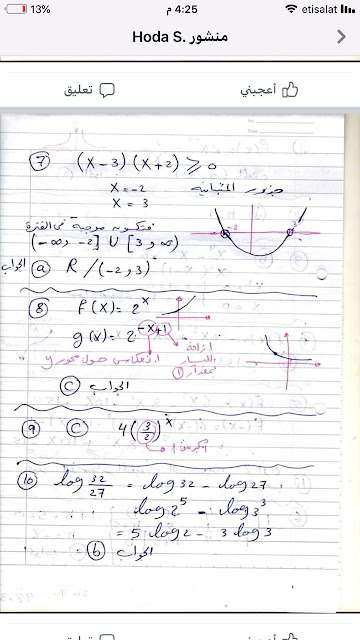 13%
4:25 م
etisalat
منشور .Hoda S
أعجبني
تعليق
7 (x-3)(x+2) ≥ 0
x = -2
x = 3
جذور المتباينه
-2
3
فتكون موجبة فى الفترة
(-∞, -2] U [3, ∞)
الجواب (a) R / (-2, 3)
8 f(x) = 2^x
g(x) = 2^(-x+1)
ازاحة
لليسار
بمقدار (1)
انعكاس حول محور y
الجواب (C)
9 (C) 4(3/2)^x
أكبر من 1
10 log 32/27 = log 32 - log 27
log 2^5 - log 3^3
= 5 log 2 - 3 log 3
الجواب (b)
أعجبني
تعليق